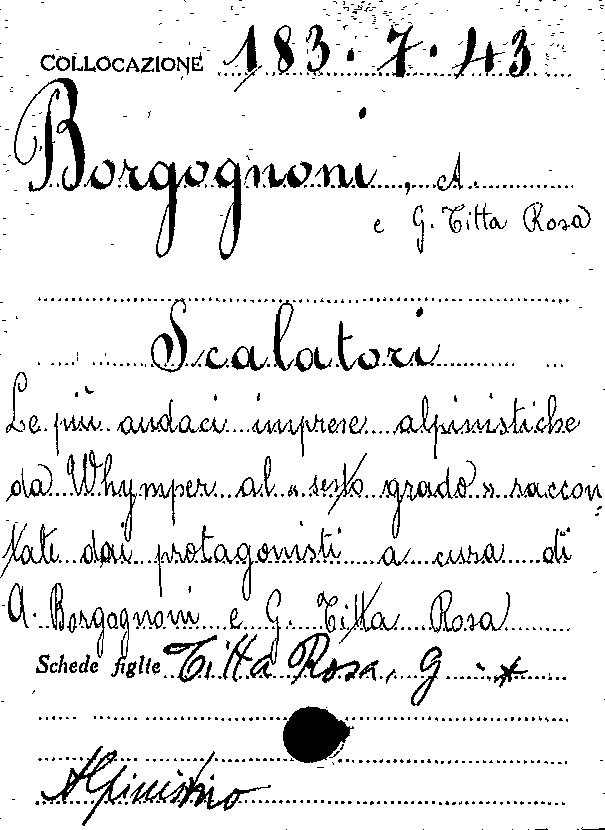 COLLOCAZIONE 183.7.43
Borgognoni, A.
e G. Titta Rosa
Scalatori
Le più audaci imprese alpinistiche
da Whymper al «sesto grado» raccon-
tate dai protagonisti a cura di
A. Borgognoni e G. Titta Rosa
Schede figlie Titta Rosa, G. *
Alpinismo